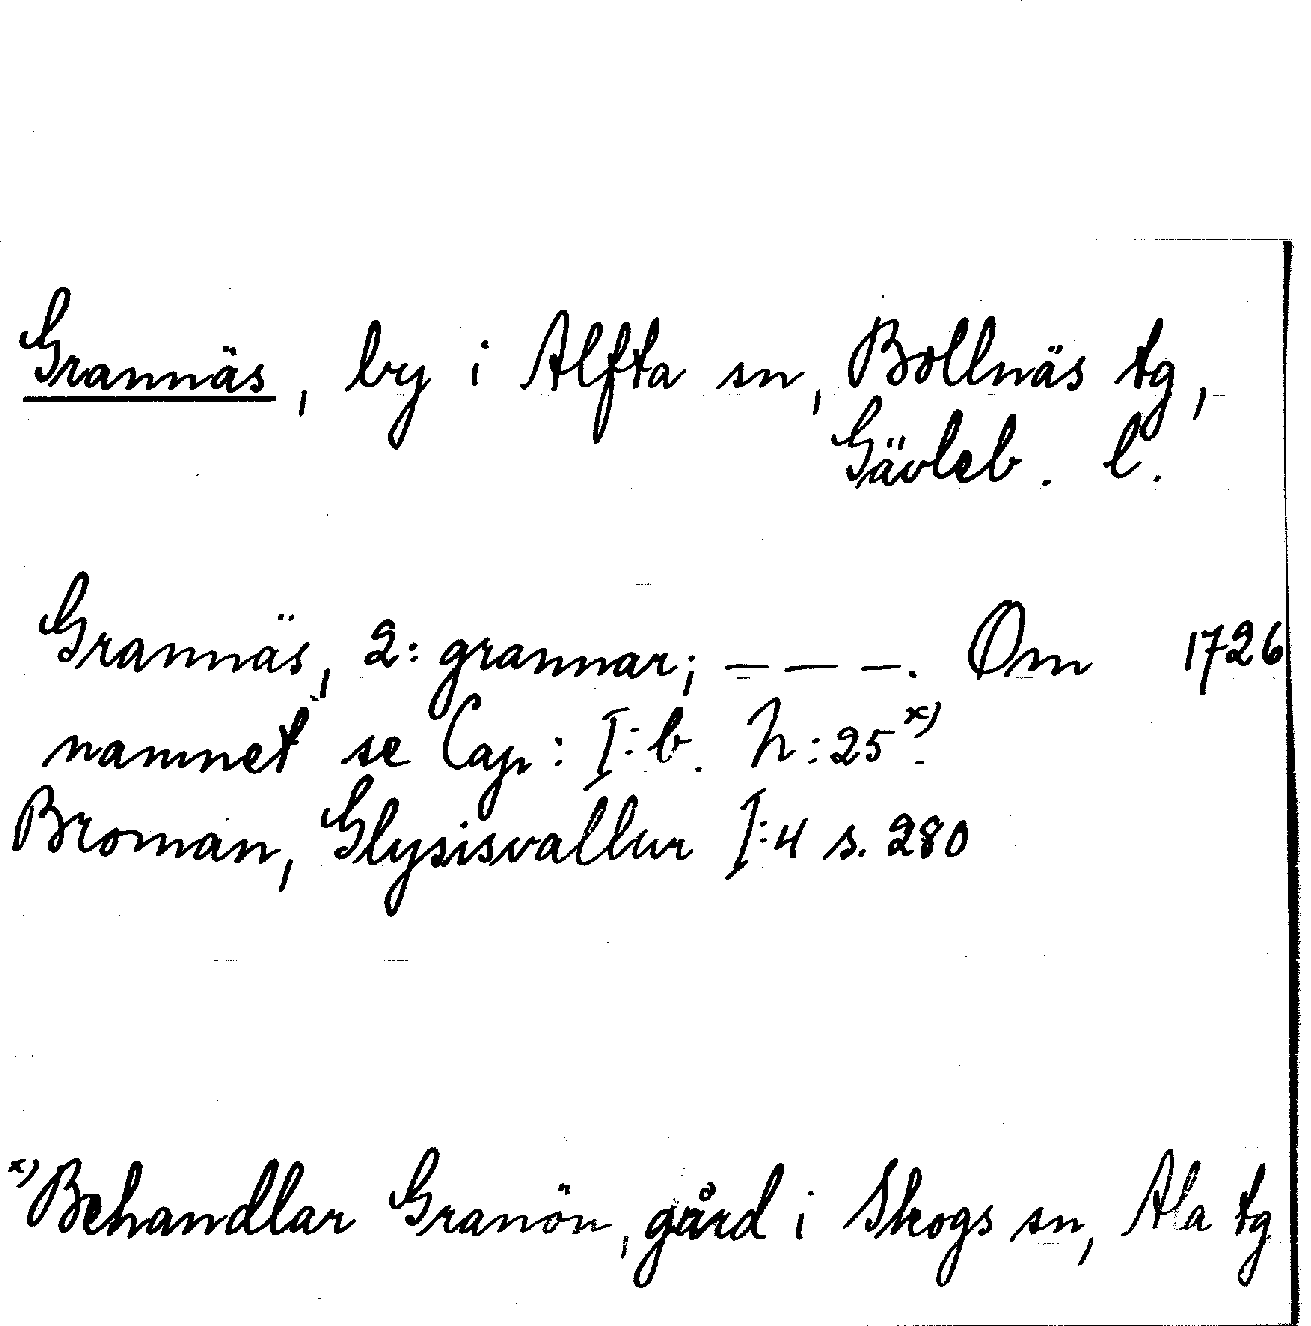 Grannäs, by i Alfta sn, Bollnäs tg,
Gävleb. l.
Grannäs, 2: grannar; — — —. Om 1726
namnet se Cap: I:b. N:25 x).
Broman, Glysisvallur I:4 s. 280
x) Behandlar Granön, gård i Skogs sn, Ala tg